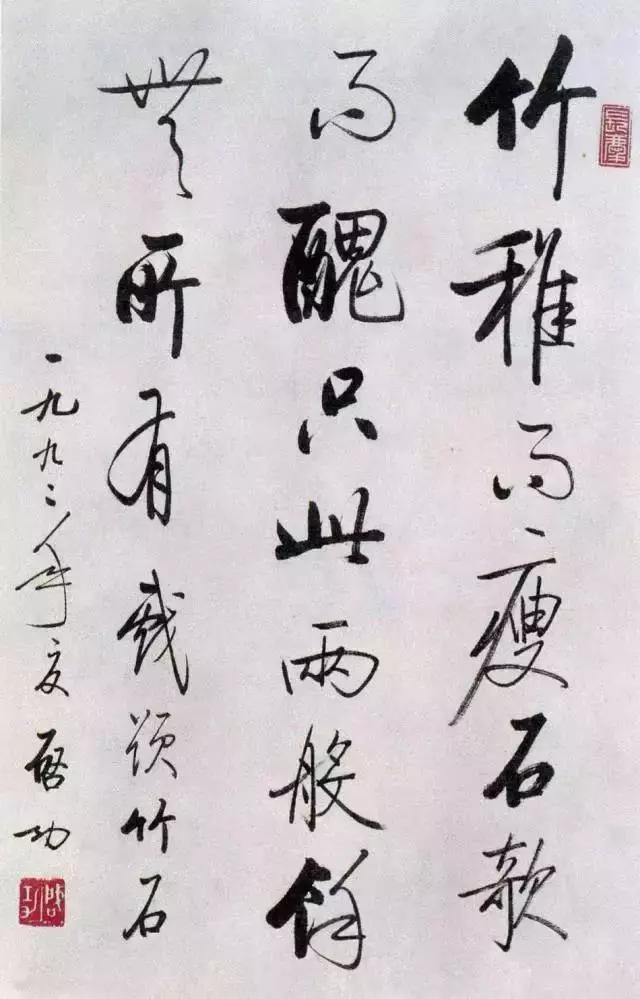 竹稚而瘦石欹
而醜只此兩般餘
無所有戲題竹石
一九九二年夏 啓功